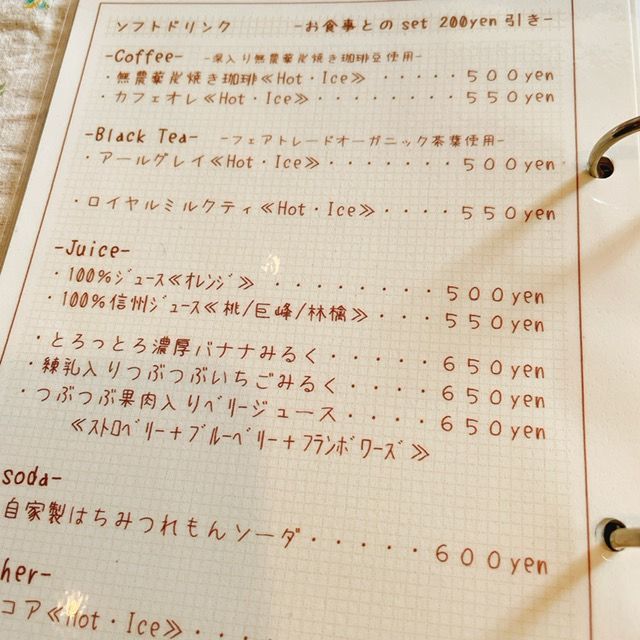 ソフトドリンク -お食事との set 200yen 引き-
-Coffee- -深入り無農薬炭焼き珈琲豆使用-
・無農薬炭焼き珈琲≪Hot・Ice≫・・・・・・・・500yen
・カフェオレ≪Hot・Ice≫・・・・・・・・・・550yen
-Black Tea- -フェアトレードオーガニック茶葉使用-
・アールグレイ≪Hot・Ice≫・・・・・・・・500yen
・ロイヤルミルクティ≪Hot・Ice≫・・・・550yen
-Juice-
・100%ジュース≪オレンジ≫・・・・・・・・500yen
・100%信州ジュース≪桃/巨峰/林檎≫・・・550yen
・とろっとろ濃厚バナナみるく・・・・・650yen
・練乳入りつぶつぶいちごみるく・・・・650yen
・つぶつぶ果肉入りベリージュース・・・・650yen
≪ストロベリー+ブルーベリー+フランボワーズ≫
soda-
自家製はちみつれもんソーダ・・・・・600yen
her-
コア≪Hot・Ice≫・・・